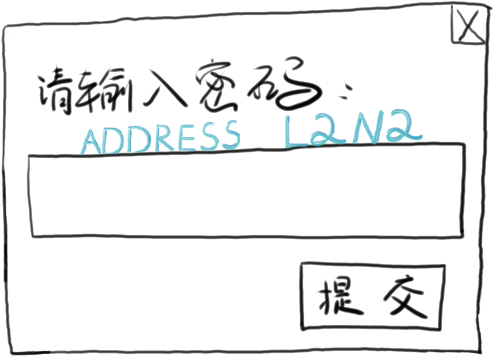 X
请输入密码:
ADDRESS L2N2
提交